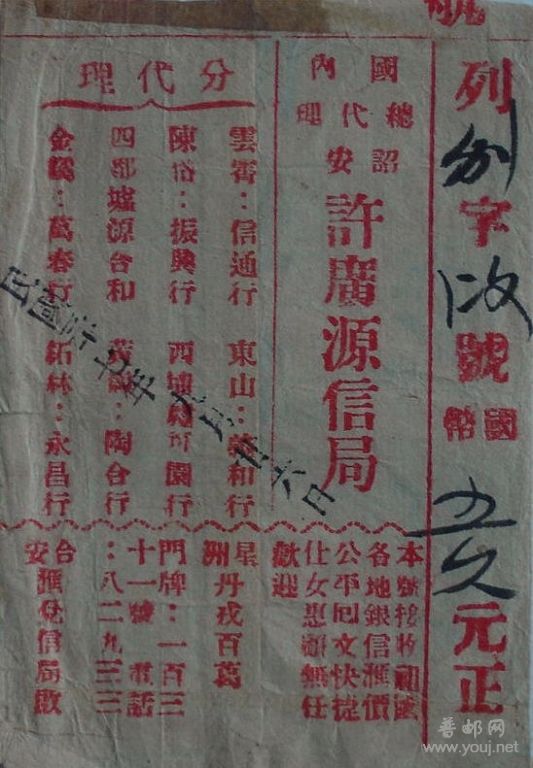 列 字 號 國幣 元正
國內
總代理
詔安
許廣源信局
分代理
雲霄：信通行 東山： 和行
陳岱：振興行 西埔 園行
四都墟源合和 ：陶合行
金 ：萬春行 柘林：永昌行
年 月廿六日
本號接收
各地銀信滙價
公平回文快捷
仕女惠顧無任
歡迎
星洲丹戎百萬
門牌：一百三
十一號 電話
：八二九三三
台安滙兌信局啟
普邮网
www.youj.net